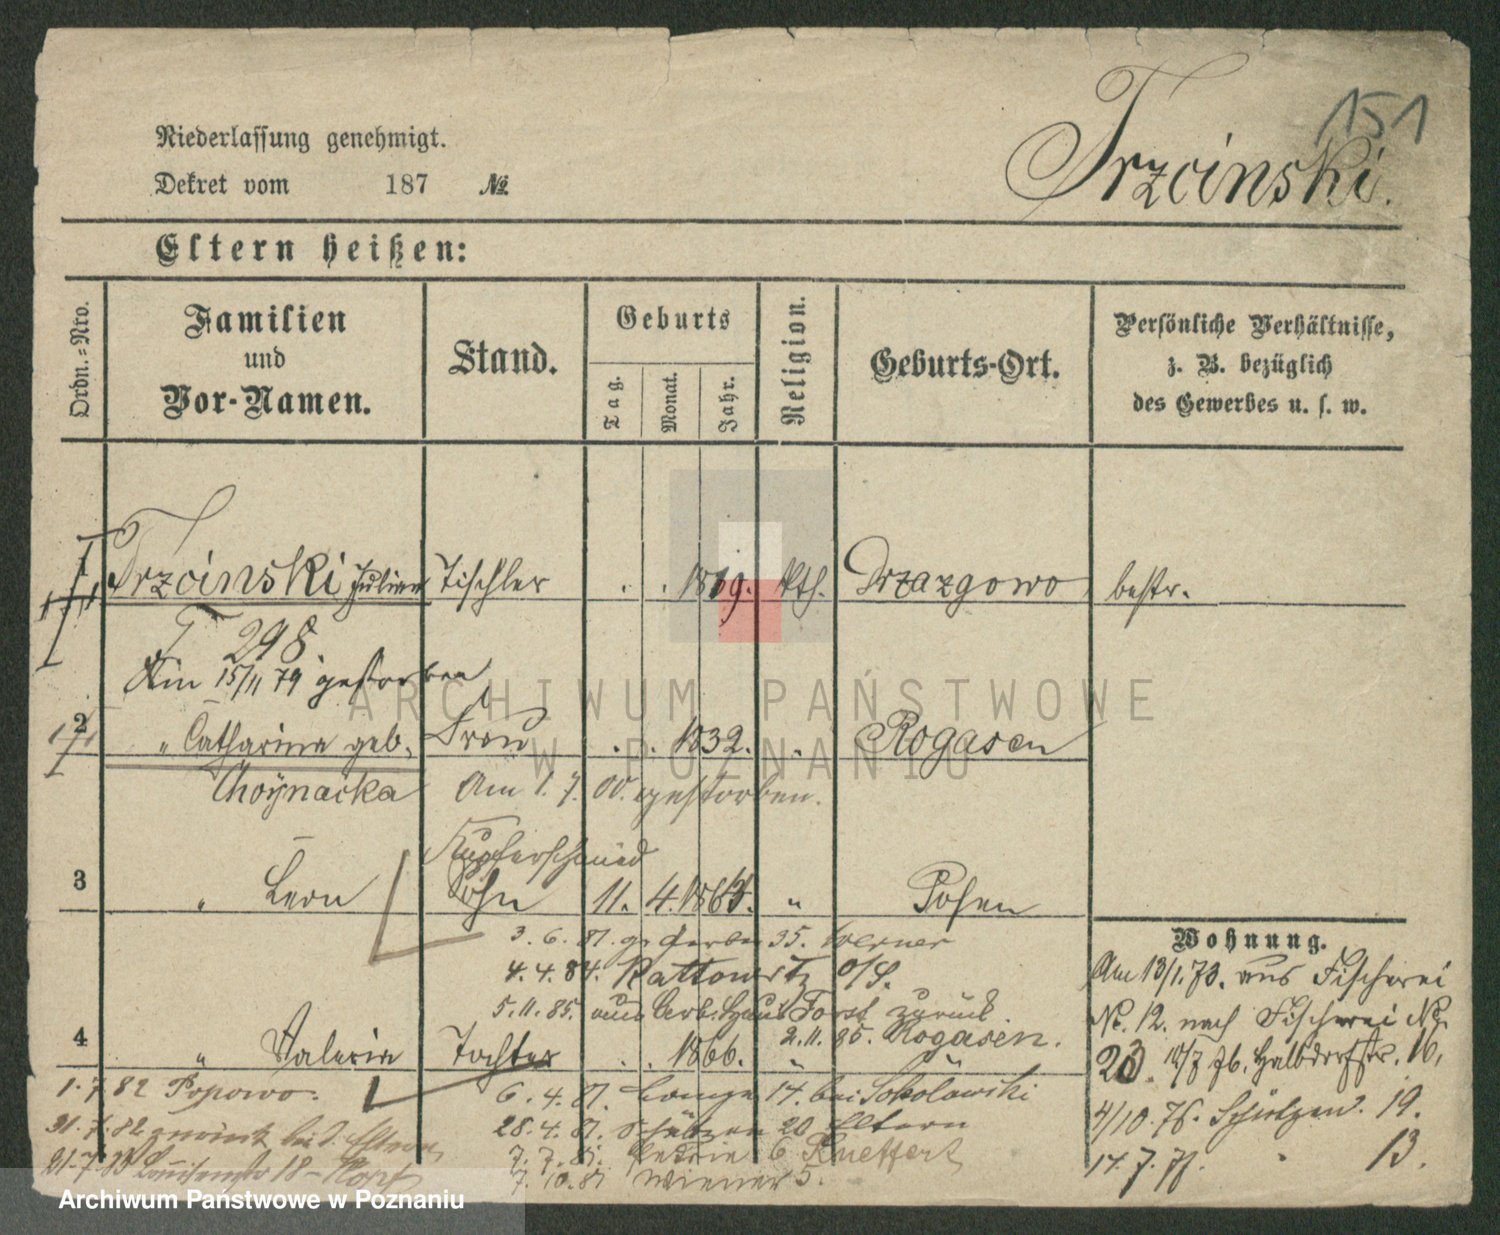 151
Trzcinski.
Niederlassung genehmigt.
Dekret vom 187 №
Eltern heißen:
Ordn.=Nro.
Familien und Vor-Namen.
Stand.
Geburts
Tag. Monat. Jahr.
Religion.
Geburts-Ort.
Persönliche Verhältnisse,
z. B. bezüglich
des Gewerbes u. s. w.
1 Trzcinski Julian Tischler . . 1819. kth. Drzazgowo bestr.
T 298.
Am 15/11 79 gestorben
2 " Catharina geb. Frau . . 1832. " Rogasen
Choynacka Am 1. 7. 00. gestorben.
Kupferschmied
3 " Leon Sohn 11. 4. " Posen
3. 6. 81. 35.
4. 4. 84. Kattowitz o/S.
5. 11. 85. aus Arb. Haus Forst zurück.
2. 11. 85. Rogasen.
4 " Valeria Tochter . . 1866. " "
1. 7 82 Popowo.
31. 7. 82 zurück bei d. Eltern
21. 7. 83 18
6. 4. 81. 14. bei Sokolowski
28. 4. 81. Schützen 20 Eltern
7. 7. 81. 6 Kneffert
7. 10. 81 Wiener 5.
Wohnung.
Am 13/1. 73. aus Fischerei
No. 12. nach Fischerei No.
23. 10/7 76. Halbdorfstr. 16,
4/10. 76. Schützen. 19.
14. 7. 77. " 13.
ARCHIWUM PAŃSTWOWE
W POZNANIU
Archiwum Państwowe w Poznaniu